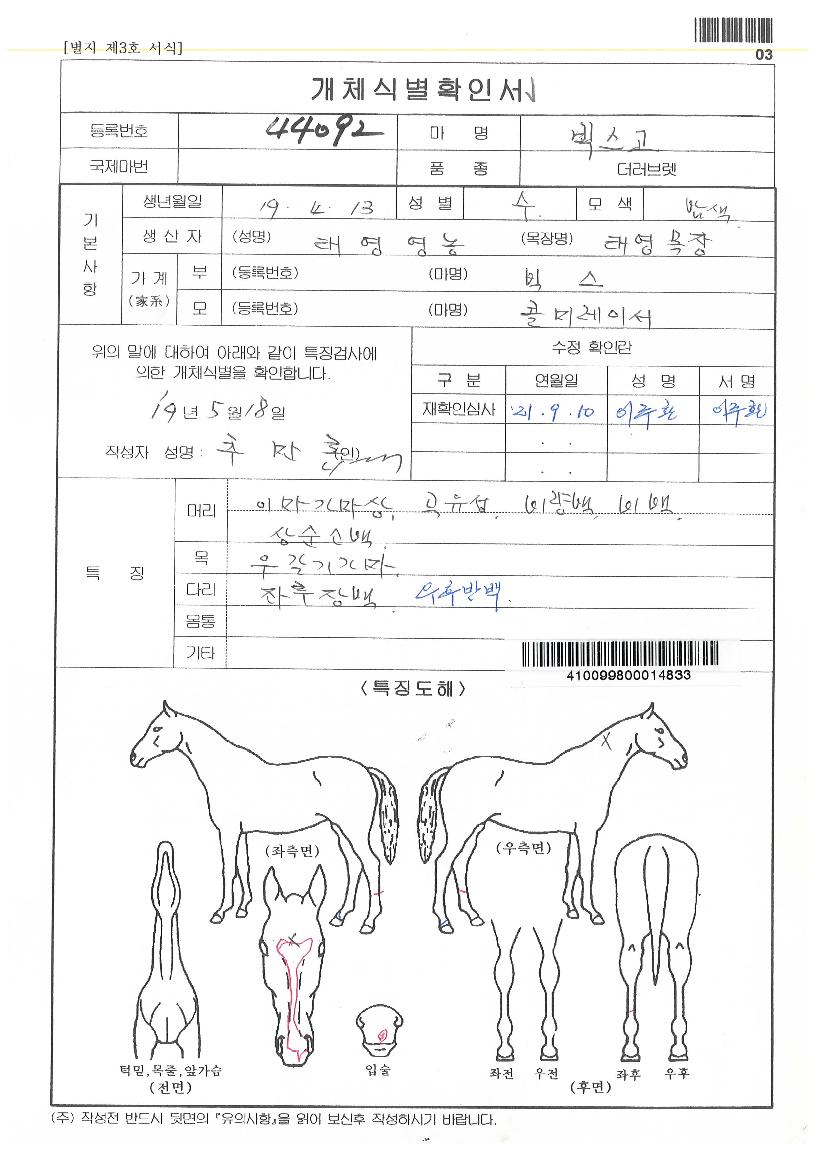 [별지 제3호 서식]
03
개체식별확인서
등록번호 44092 마 명 빅스고
국제마번 품 종 더러브렛
기본사항
생년월일 19. 4. 13 성 별 수 모 색 밤색
생 산 자 (성명) 태영영농 (목장명) 태영목장
가 계 (家系) 부 (등록번호) (마명) 빅스
모 (등록번호) (마명) 콜미레이서
위의 말에 대하여 아래와 같이 특징검사에
의한 개체식별을 확인합니다.
19년 5월 18일
작성자 성명 : 추만 (인)
수정 확인란
구 분 연월일 성 명 서 명
재확인심사 '21. 9. 10 이주환 이주환
. .
. .
특 징
머리 이마가마상, 곡유성, 비량백, 비백,
상순소백
목 우갈기가마
다리 좌후장백 우후반백.
몸통
기타
410099800014833
<특징도해>
(좌측면) (우측면)
턱밑,목줄,앞가슴
(전면)
입술
좌전 우전 좌후 우후
(후면)
(주) 작성전 반드시 뒷면의 『유의사항』을 읽어 보신후 작성하시기 바랍니다.